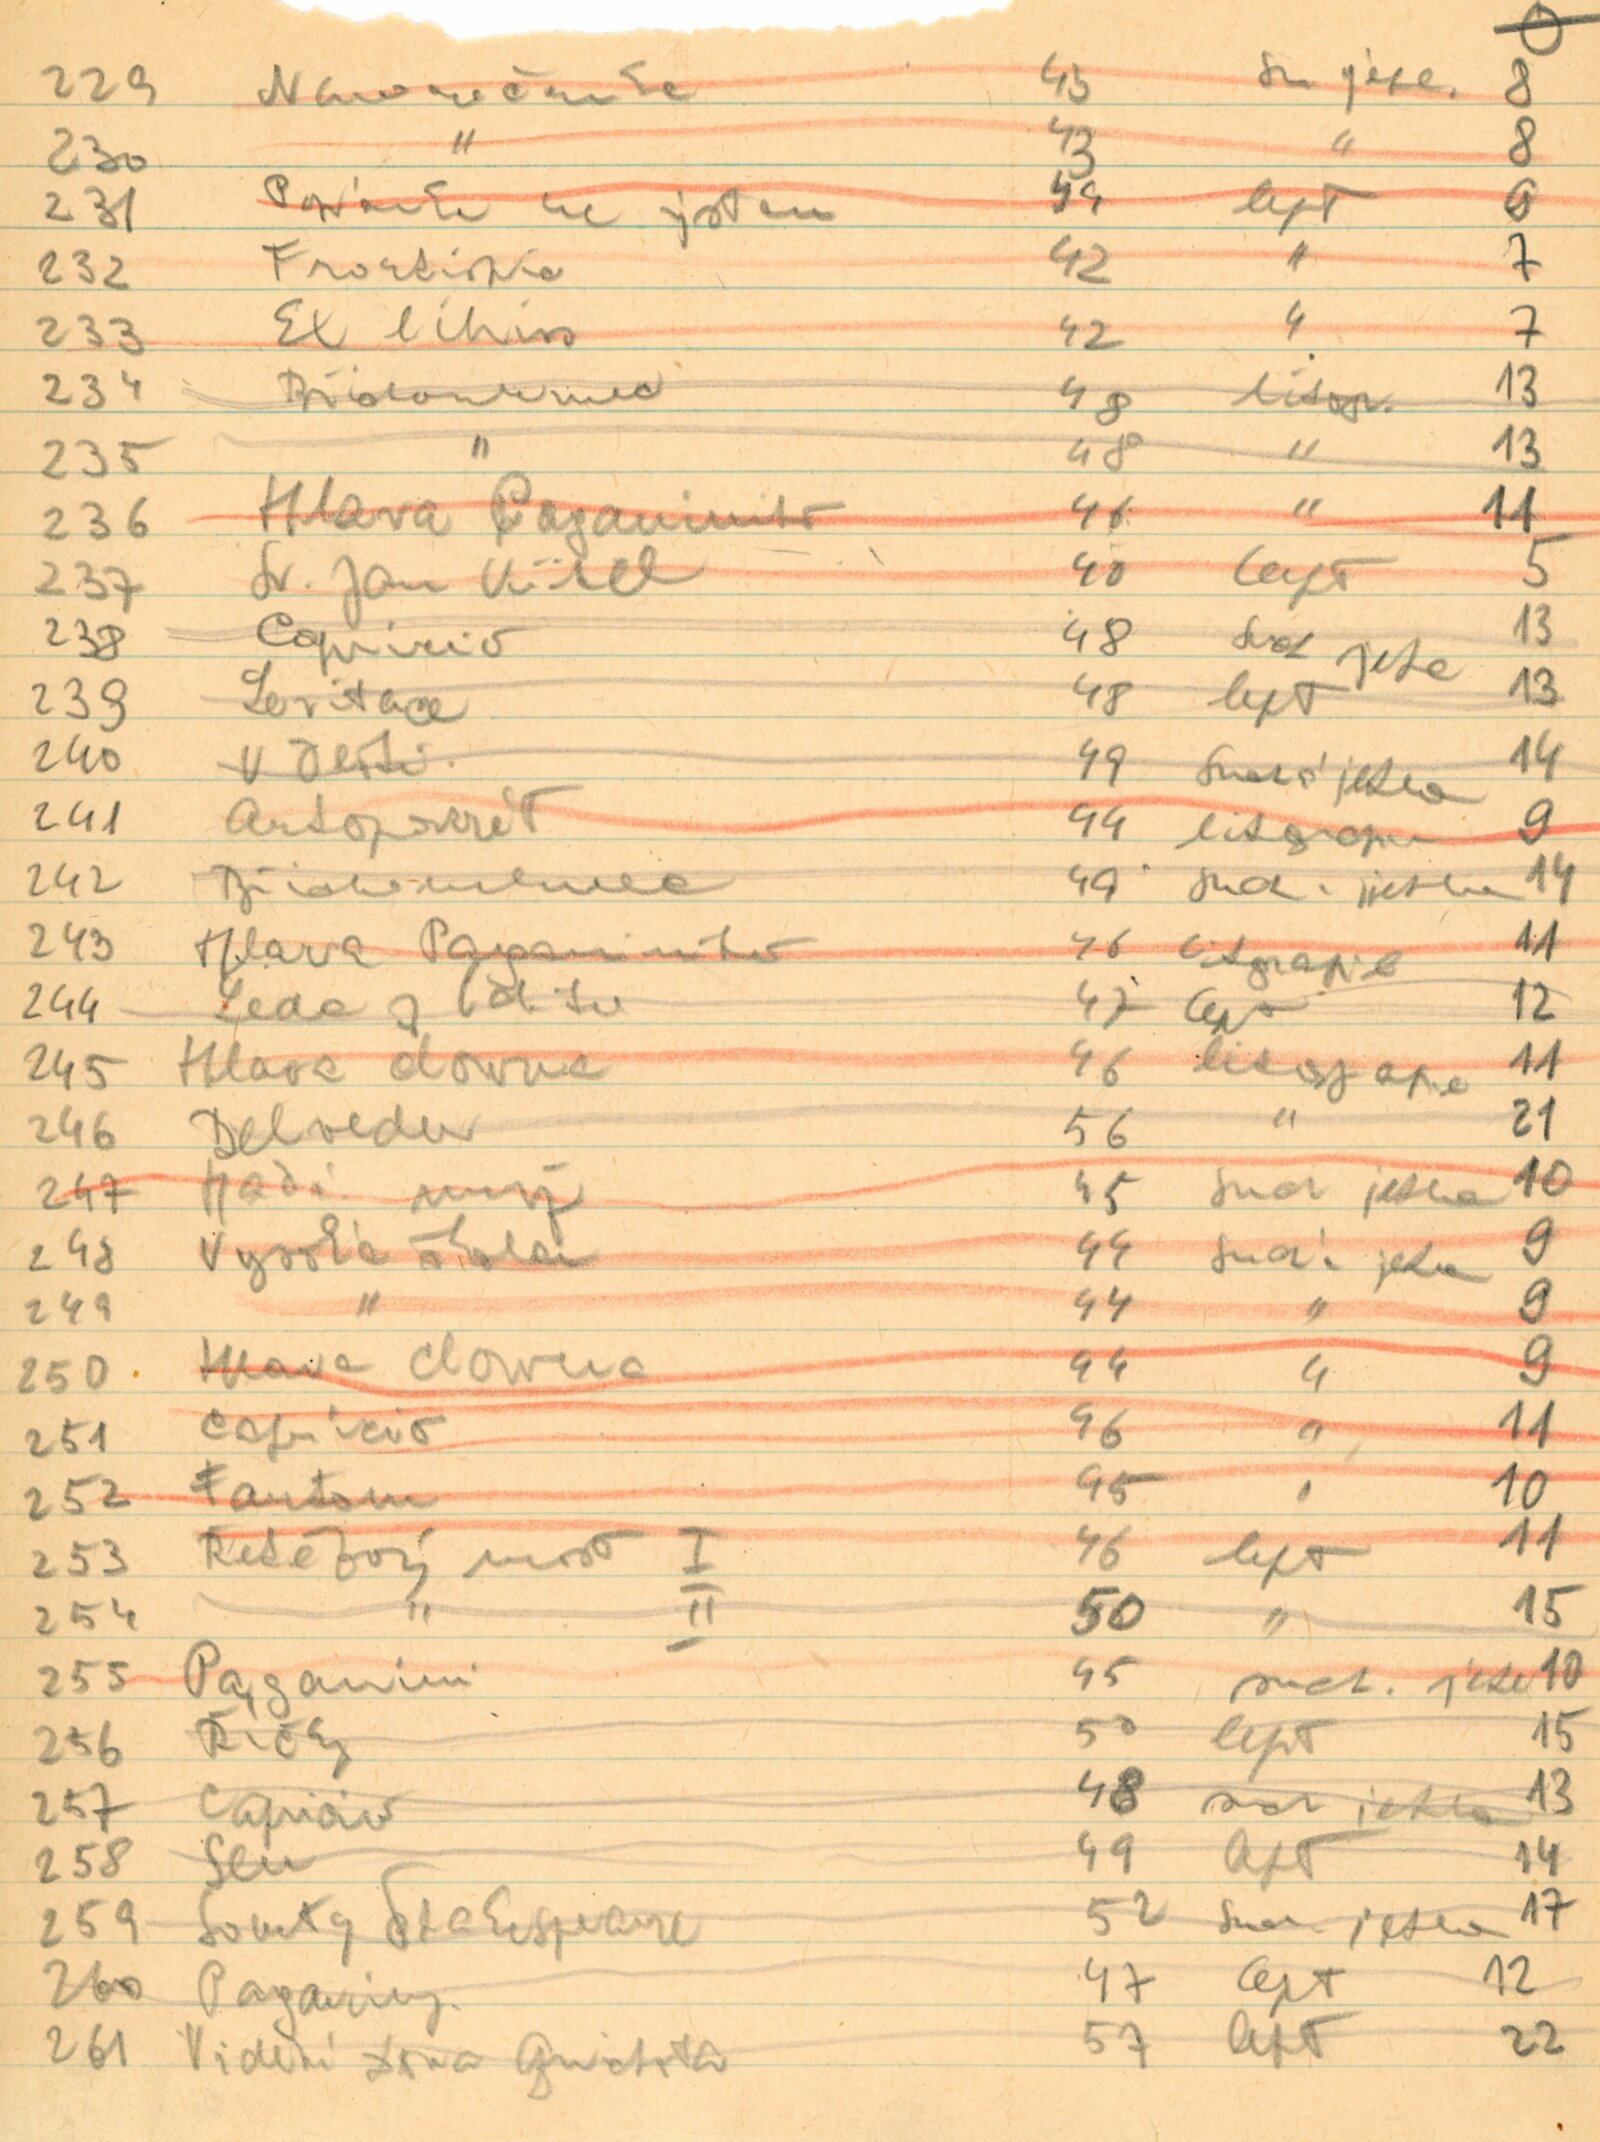 229 43 8
230 " 43 " 8
231 44 lept 6
232 42 " 7
233 Ex libris 42 " 7
234 Břichomluvec 48 litogr. 13
235 " 48 " 13
236 Hlava Paganiniho 46 " 11
237 Sv. Jan 40 lept 5
238 Capricio 48 such jehla 13
239 Levitace 48 lept 13
240 V 49 suchá jehla 14
241 Autoportrét 44 litografie 9
242 Břichomluvec 49 such. jehla 14
243 Hlava Paganiniho 46 litografie 11
244 Leda s labutí 47 lept 12
245 Hlava clowna 46 litografie 11
246 Belveder 56 " 21
247 Hadí muž 45 such jehla 10
248 Vysoká škola 44 such. jehla 9
249 " 44 " 9
250 Hlava clowna 44 " 9
251 Capricio 46 " 11
252 Fantom 45 " 10
253 Řetězový most I 46 lept 11
254 " II 50 " 15
255 Paganini 45 such. jehla 10
256 50 lept 15
257 Capricio 48 such jehla 13
258 Sen 49 lept 14
259 Sonety Shakespeare 52 such. jehla 17
260 Paganiny. 47 lept 12
261 Vidění dona Quichota 57 lept 22